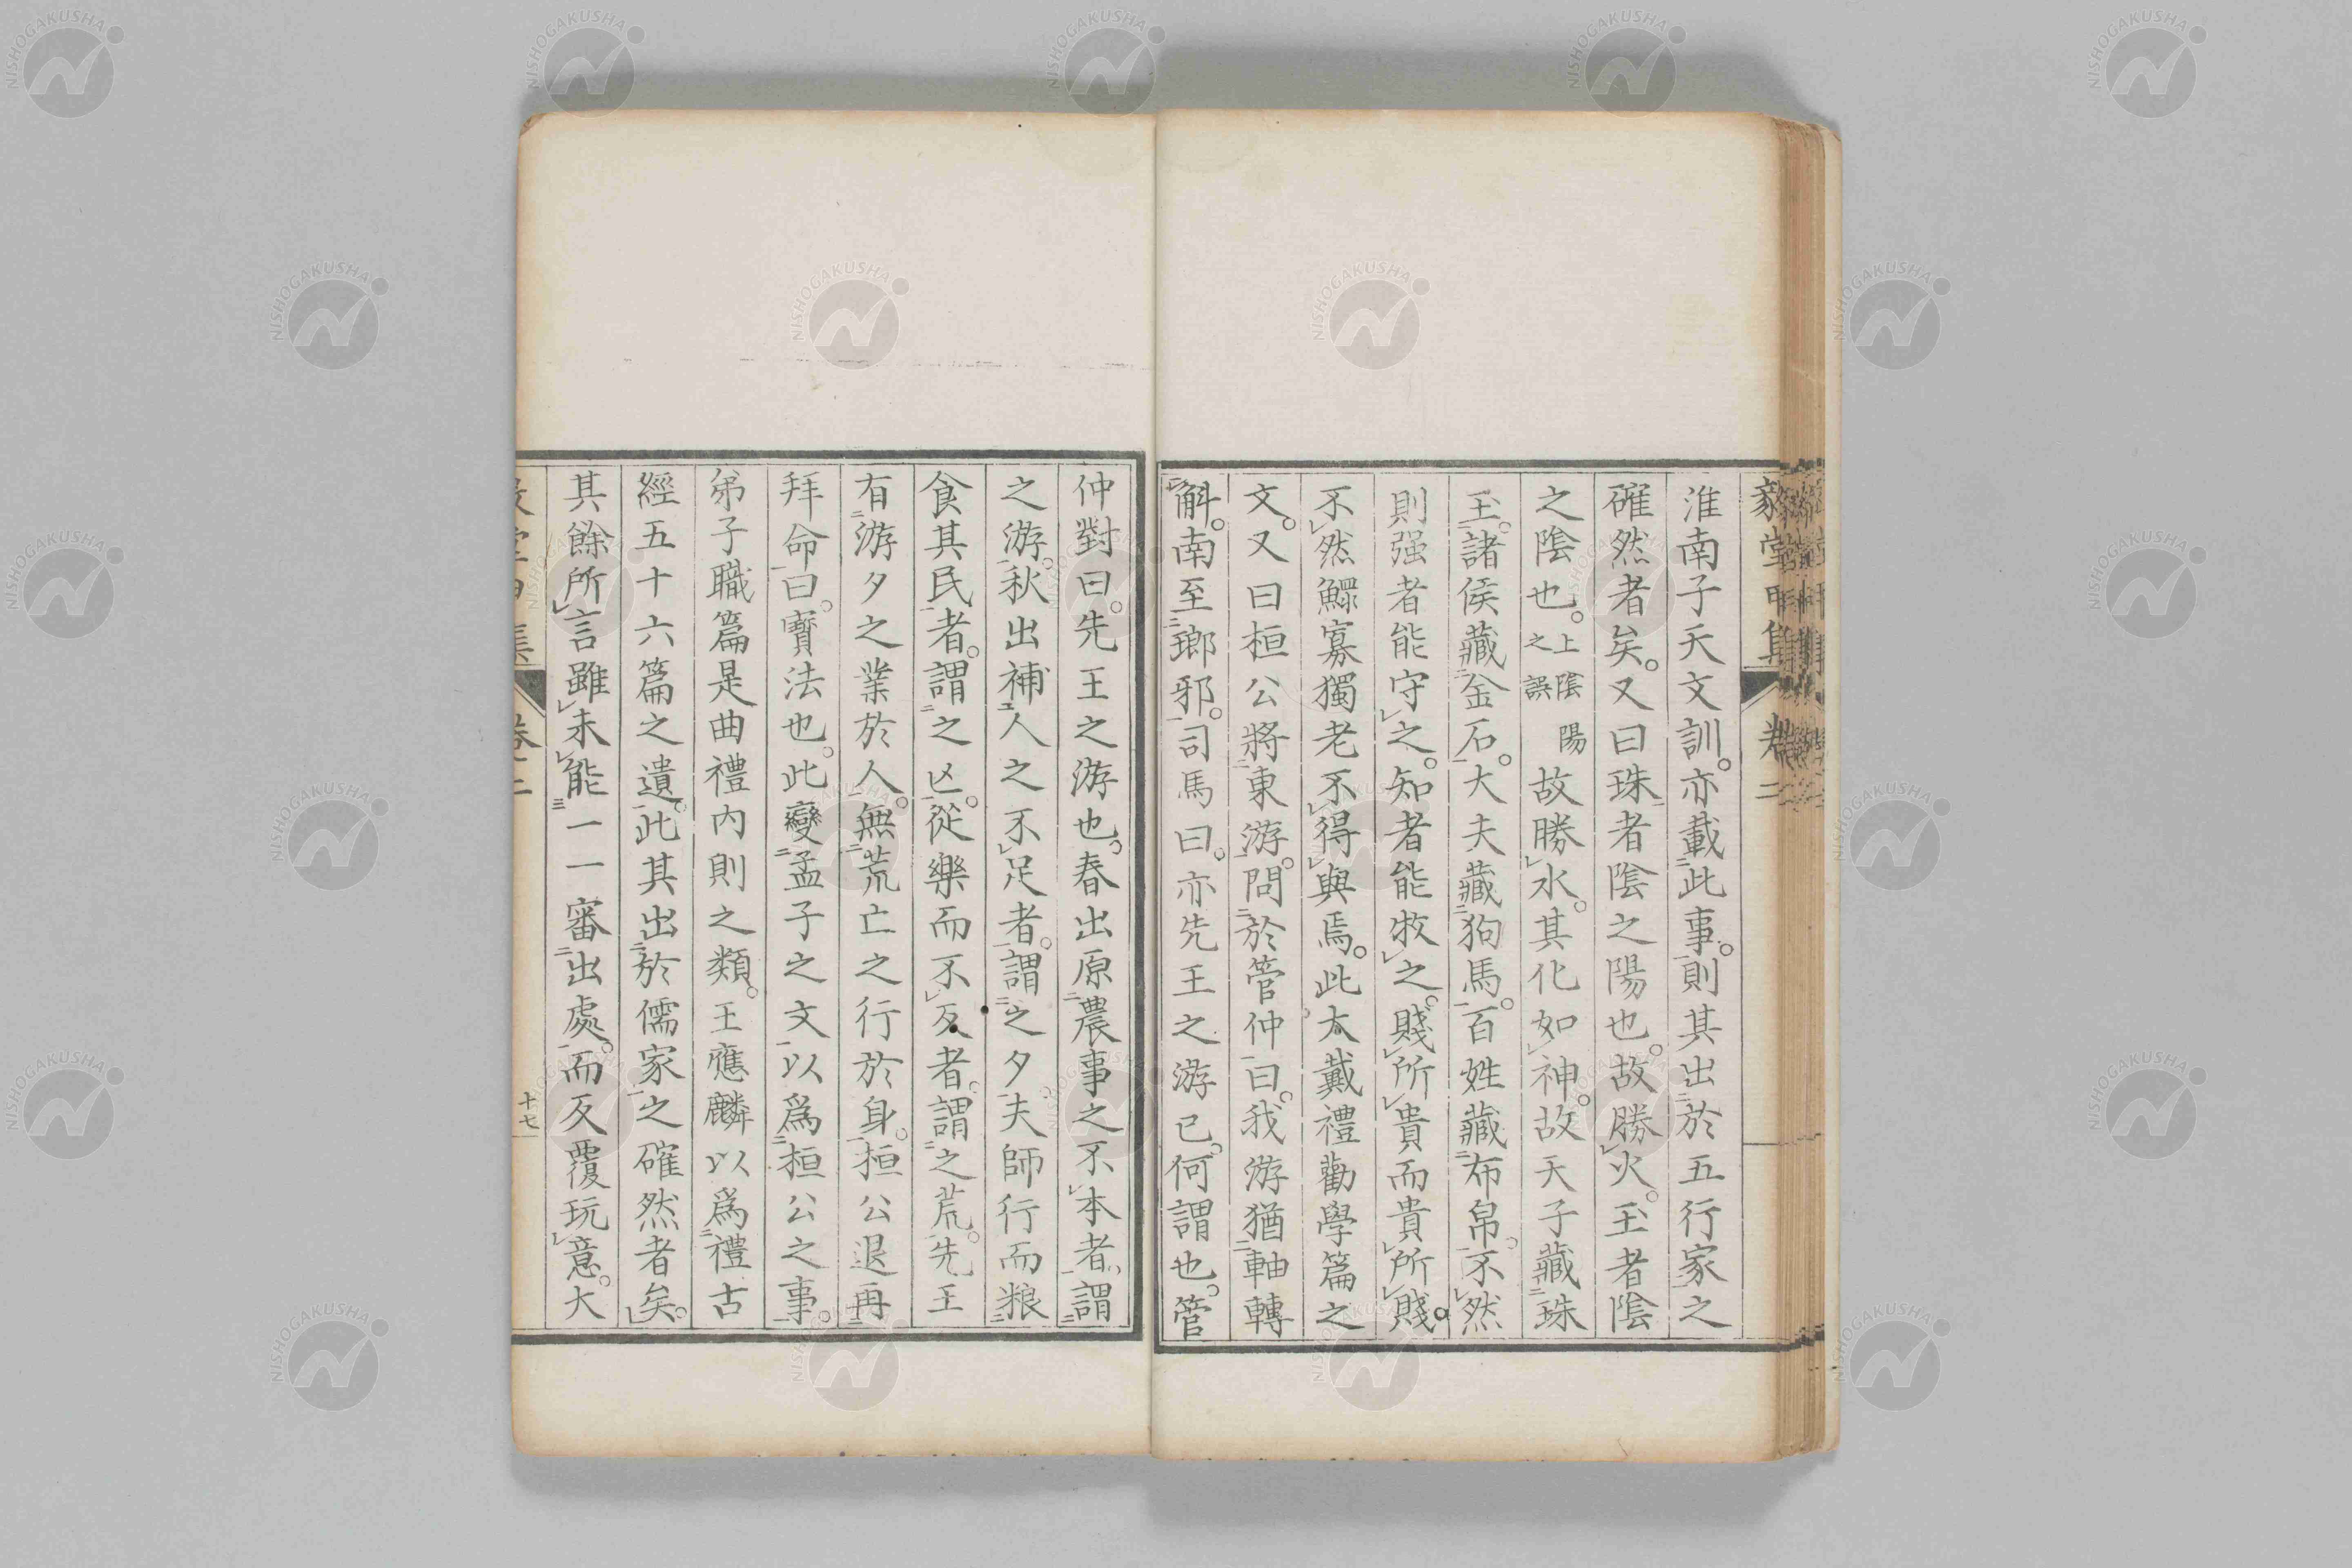 毅堂甲集 卷二
淮南子天文訓。亦載此事。則其出於五行家之
確然者矣。又曰珠者陰之陽也。故勝火。玉者陰
之陰也。上陰陽之誤故勝水。其化如神。故天子藏珠
玉。諸侯藏金石。大夫藏狗馬。百姓藏布帛。不然
則强者能守之。知者能牧之。賤所貴而貴所賤。
不然鰥寡獨老不得與焉。此大戴禮勸學篇之
文。又曰桓公將東游。問於管仲曰。我游猶軸轉
斛。南至瑯邪。司馬曰。亦先王之游已。何謂也。管
仲對曰。先王之游也。春出原農事之不本者。謂
之游。秋出補人之不足者。謂之夕。夫師行而粮
食其民者。謂之亾。從樂而不反者。謂之荒。先王
有游夕之業於人。無荒亡之行於身。桓公退再
拜命曰。寶法也。此變孟子之文以爲桓公之事。
弟子職篇是曲禮內則之類。王應麟以爲禮古
經五十六篇之遺。此其出於儒家之確然者矣。
其餘所言雖未能一一審出處。而反覆玩意。大
毅堂甲集 卷二 十七
NISHOGAKUSHA